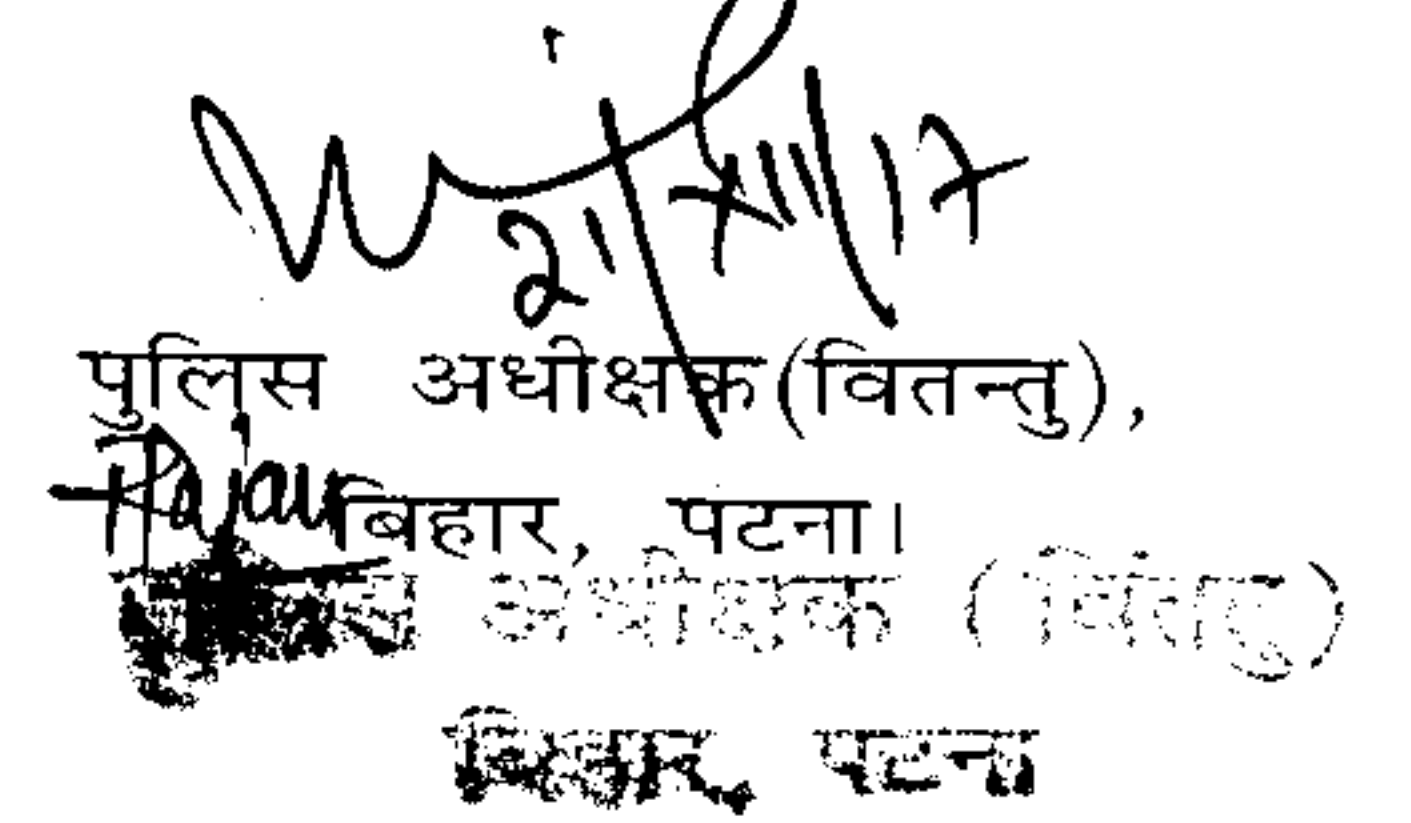 21/XII/17
पुलिस अधीक्षक(वितन्तु),
Rajan
बिहार, पटना।
अधीक्षक (वितंतु)
बिहार, पटना